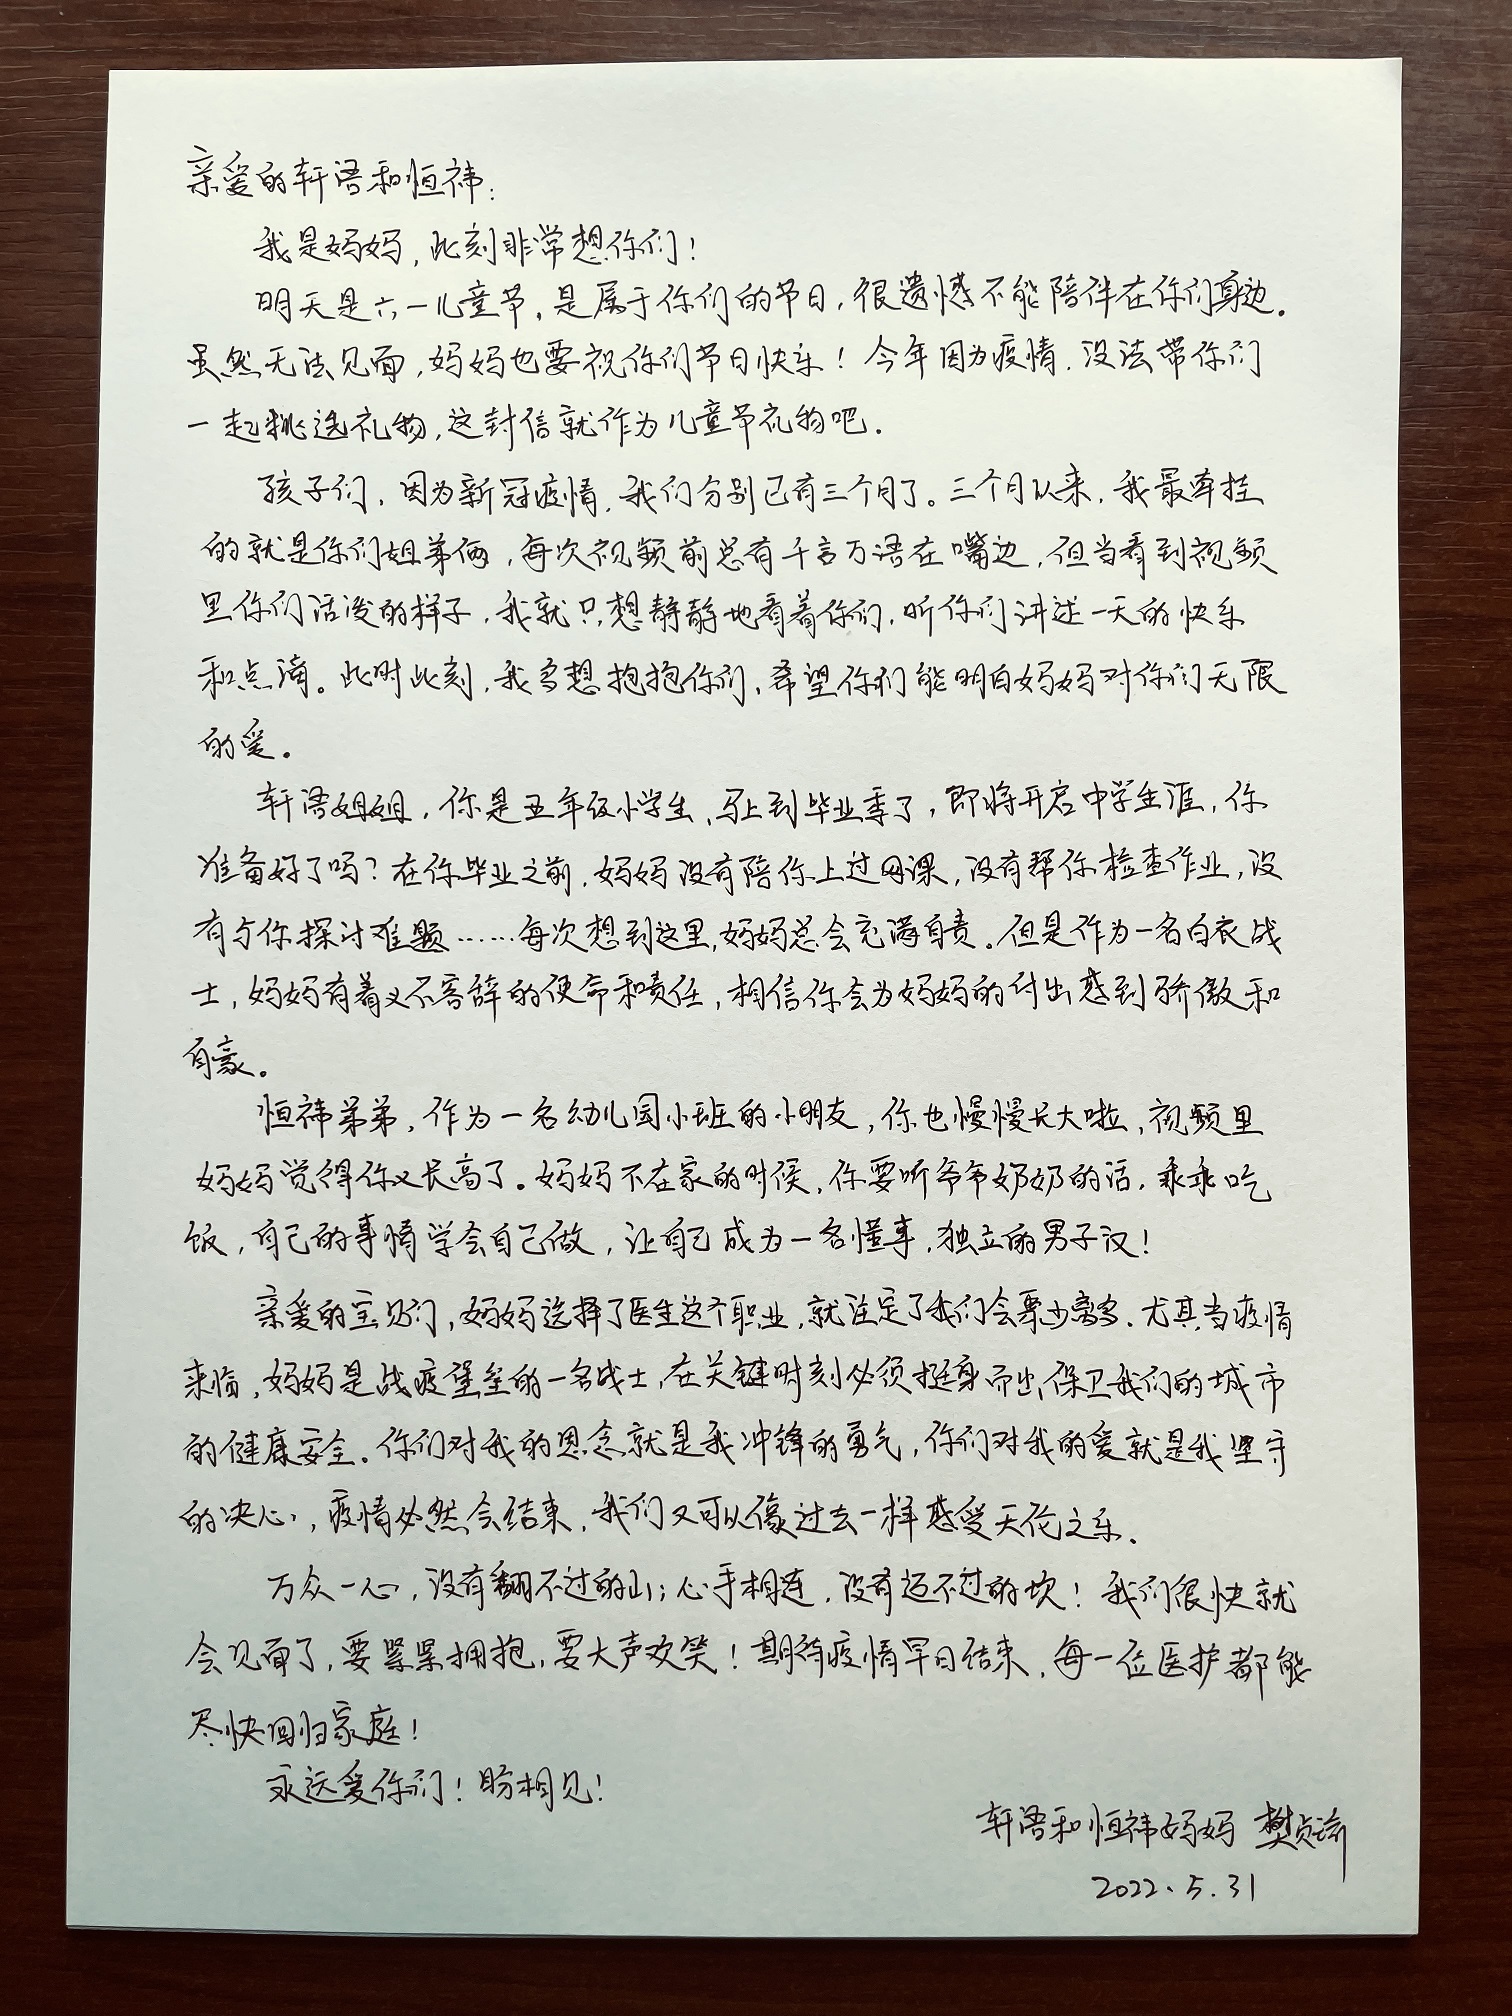 亲爱的轩语和恒祎:
我是妈妈,此刻非常想你们!
明天是六一儿童节,是属于你们的节日,很遗憾不能陪伴在你们身边。
虽然无法见面,妈妈也要祝你们节日快乐!今年因为疫情,没法带你们
一起挑选礼物,这封信就作为儿童节礼物吧。
孩子们,因为新冠疫情,我们分别已有三个月了。三个月以来,我最牵挂
的就是你们姐弟俩,每次视频前总有千言万语在嘴边,但当看到视频
里你们活泼的样子,我就只想静静地看着你们,听你们讲述一天的快乐
和点滴。此时此刻,我多想抱抱你们,希望你们能明白妈妈对你们无限
的爱。
轩语姐姐,你是五年级小学生,马上到毕业季了,即将开启中学生涯,你
准备好了吗?在你毕业之前,妈妈没有陪你上过网课,没有帮你检查作业,没
有与你探讨难题……每次想到这里,妈妈总会充满自责。但是作为一名白衣战
士,妈妈有着义不容辞的使命和责任,相信你会为妈妈的付出感到骄傲和
自豪。
恒祎弟弟,作为一名幼儿园小班的小朋友,你也慢慢长大啦,视频里
妈妈觉得你又长高了。妈妈不在家的时候,你要听爷爷奶奶的话,乖乖吃
饭,自己的事情学会自己做,让自己成为一名懂事,独立的男子汉!
亲爱的宝贝们,妈妈选择了医生这个职业,就注定了我们会聚少离多,尤其当疫情
来临,妈妈是战疫堡垒的一名战士,在关键时刻必须挺身而出,保卫我们的城市
的健康安全。你们对我的思念就是我冲锋的勇气,你们对我的爱就是我坚守
的决心,疫情必然会结束,我们又可以像过去一样感受天伦之乐。
万众一心,没有翻不过的山;心手相连,没有迈不过的坎!我们很快就
会见面了,要紧紧拥抱,要大声欢笑!期待疫情早日结束,每一位医护都能
尽快回归家庭!
永远爱你们!盼相见!
轩语和恒祎妈妈 樊贞
2022.5.31